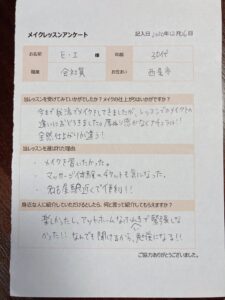 メイクレッスンアンケート
記入日 月 日
お名前 E・I 様 年齢 30代
職業 会社員 お住まい 西尾市
当レッスンを受けてみていかがでしたか？メイクの仕上がりはいかがですか？
今まで我流でメイクしてきましたが、レッスンでのメイクの
違いにおどろきました!! 厚ぬり感がなくナチュラル!!
全然仕上がりが違う!
当レッスンを選ばれた理由
・メイクを習したかった。
・マッサージ体験のチケットも気になった。
・名古屋駅近くで便利!!
身近な人に紹介していただけるとしたら、何と言って紹介してもらえますか？
楽しかったし、アットホームなふんいきで緊張しな
かった!! なんでも聞けるから、勉強になる!!
ご協力ありがとうございました。